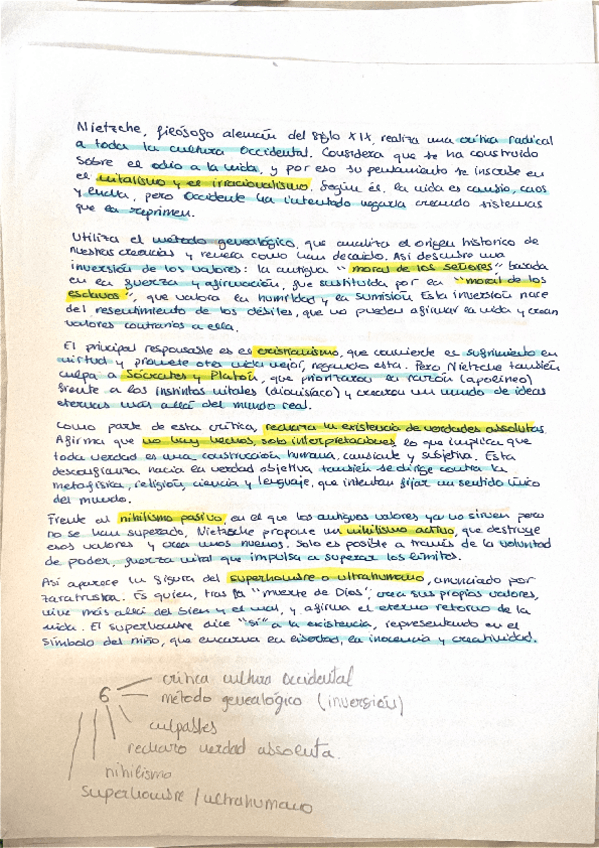 Nietzche, filósofo alemán del siglo XIX, realiza una crítica radical
a toda la cultura occidental. Considera que se ha construido
sobre el odio a la vida, y por eso su pensamiento se inscribe en
el vitalismo y el irracionalismo. Según él, la vida es cambio, caos
y lucha, pero Occidente ha intentado negarla creando sistemas
que la reprimen.
Utiliza el método genealógico, que analiza el origen histórico de
nuestras creencias y revela como han decaído. Así descubre una
inversión de los valores: la antigua "moral de los señores", basada
en la fuerza y afirmación, fue sustituida por la "moral de los
esclavos", que valora la humildad y la sumisión. Esta inversión nace
del resentimiento de los débiles, que no pueden afirmar la vida y crean
valores contrarios a ella.
El principal responsable es el cristianismo, que convierte el sufrimiento en
virtud y promete otra vida mejor, negando esta. Pero Nietzche también
culpa a Sócrates y Platón, que priorizaron la razón (apolíneo)
frente a los instintos vitales (dionisíaco) y crearon un mundo de ideas
eternas más allá del mundo real.
Como parte de esta crítica, rechaza la existencia de verdades absolutas.
Afirma que no hay hechos, solo interpretaciones, lo que implica que
toda verdad es una construcción humana, cambiante y subjetiva. Esta
desconfianza hacia la verdad objetiva también se dirige contra la
metafísica, religión, ciencia y lenguaje, que intentan fijar un sentido único
del mundo.
Frente al nihilismo pasivo, en el que los antiguos valores ya no sirven pero
no se han superado, Nietzsche propone un nihilismo activo, que destruye
esos valores y crea unos nuevos. Solo es posible a través de la voluntad
de poder, fuerza vital que impulsa a superar los límites.
Así aparece la figura del superhombre o ultrahumano, anunciado por
Zaratustra. Es quien, tras la "muerte de Dios", crea sus propios valores,
vive más allá del bien y el mal, y afirma el eterno retorno de la
vida. El superhombre dice "sí" a la existencia, representando en el
símbolo del niño, que encarna la libertad, la inocencia y creatividad.
crítica cultura occidental
6 método genealógico (inversión)
culpables
rechazo verdad absoluta.
nihilismo
superhombre / ultrahumano